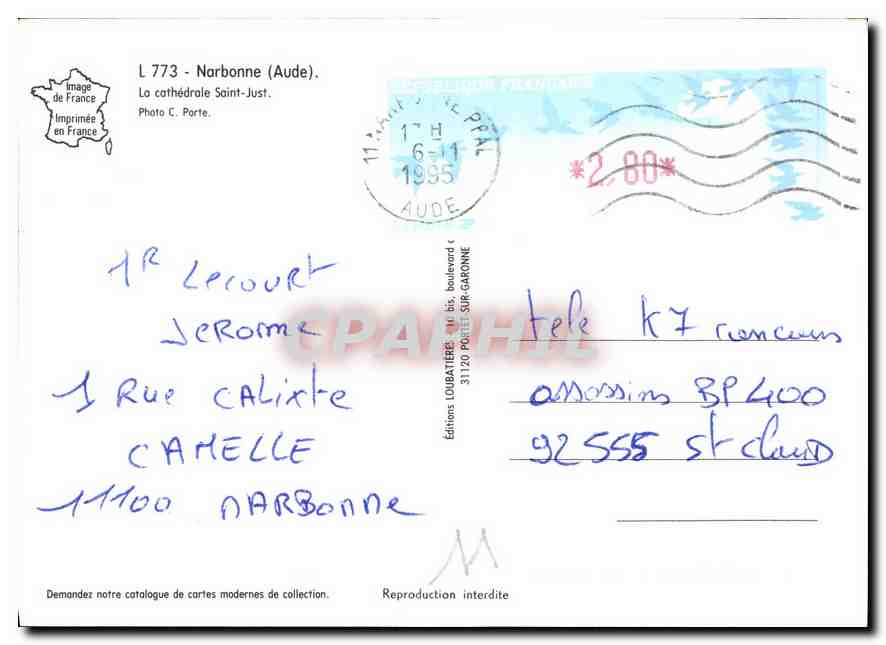 L 773 - Narbonne (Aude).
La cathédrale Saint-Just.
Photo C. Porte.
Image
de France
Imprimée
en France
REPUBLIQUE FRANCAISE
11 NARBONNE PPAL
17H
6-11
1995
AUDE
*2,80*
1R Lecourt
JEROME
1 Rue CALixte
CAMELLE
11100 NARBONNE
Éditions LOUBATIÈRES bis, boulevard
31120 PORTET-SUR-GARONNE
CPARHIL
tele K7 concours
assassins BP 400
92555 St Cloud
11
Demandez notre catalogue de cartes modernes de collection.
Reproduction interdite